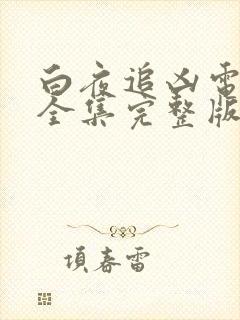 白夜追凶电
全集完整版
项春雷